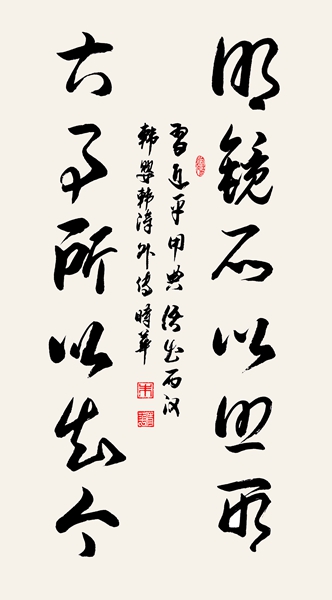 明鏡所以照形
古事所以知今
習近平用典語出西汉
韓嬰韓詩外傳時華
朱